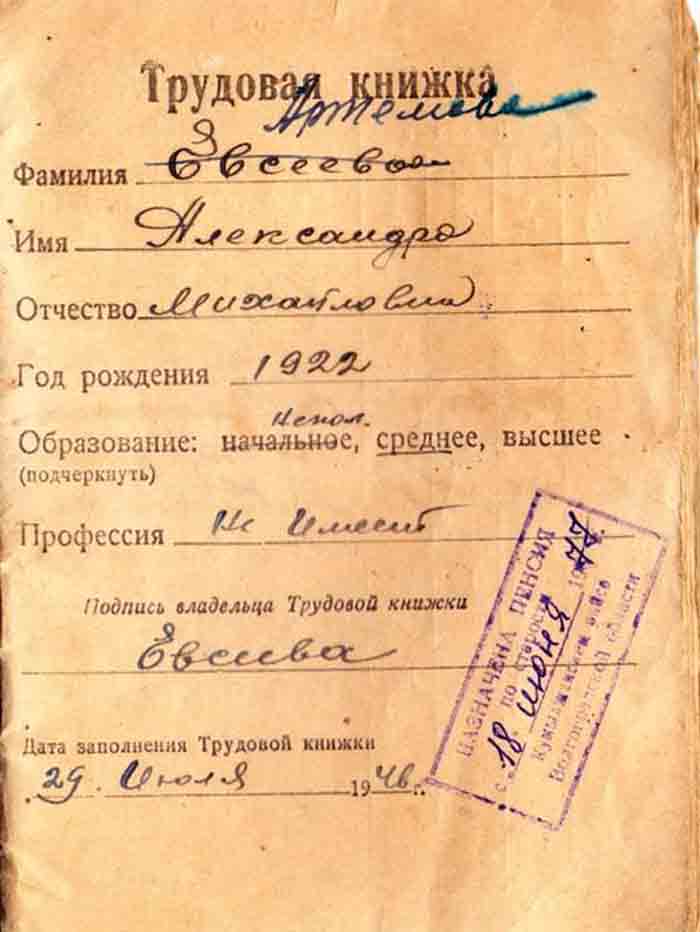 Трудовая книжка
Артемова
Я
Фамилия Евсеева
Имя Александра
Отчество Михайловна
Год рождения 1922
Непол.
Образование: начальное, среднее, высшее
(подчеркнуть)
Профессия Не имеет
Подпись владельца Трудовой книжки
Евсива
Дата заполнения Трудовой книжки
29 Июля 1946 г.
НАЗНАЧЕНА ПЕНСИЯ
по старости
с 18 июня 1977
Волгоградской области